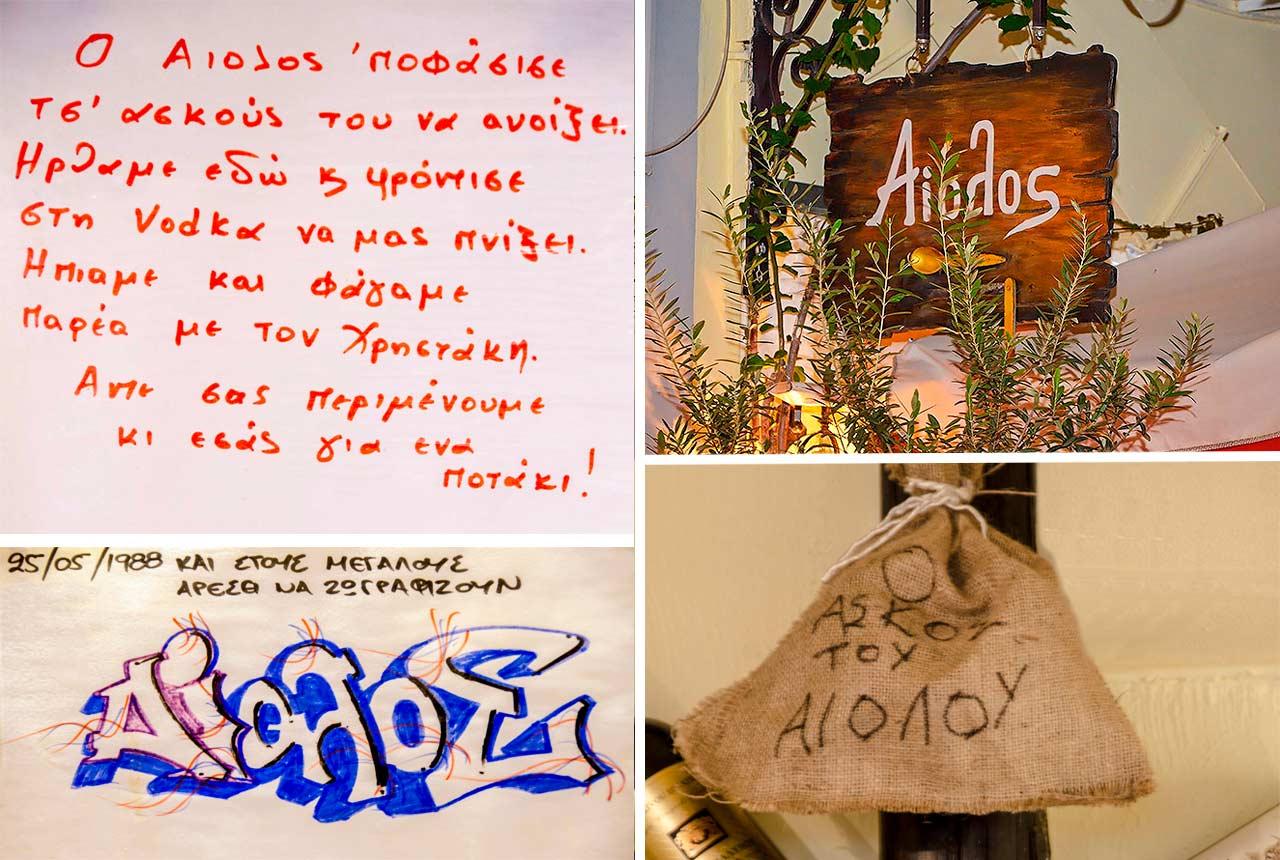 Ο Αιολος 'ποφάσισε
τσ' ασκούς του να ανοίξει.
Ηρθαμε εδώ κ φρόντισε
στη Vodka να μας πνίξει.
Ηπιαμε και φάγαμε
παρέα με τον Χρηστάκη.
Αντε σας περιμένουμε
κι εσάς για ενα
ποτάκι!
25/05/1988 ΚΑΙ ΣΤΟΥΣ ΜΕΓΑΛΟΥΣ
ΑΡΕΣΕΙ ΝΑ ΖΩΓΡΑΦΙΖΟΥΝ
ΑίολοΣ
Αίολος
Ο
ΑΣΚΟΣ
ΤΟΥ
ΑΙΟΛΟΥ